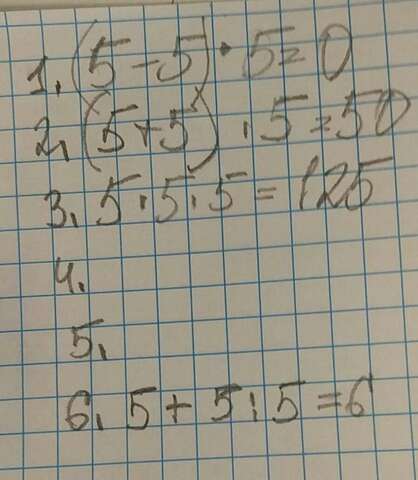 1. (5 - 5) · 5 = 0
2. (5 + 5) · 5 = 50
3. 5 · 5 · 5 = 125
4.
5.
6. 5 + 5 : 5 = 6